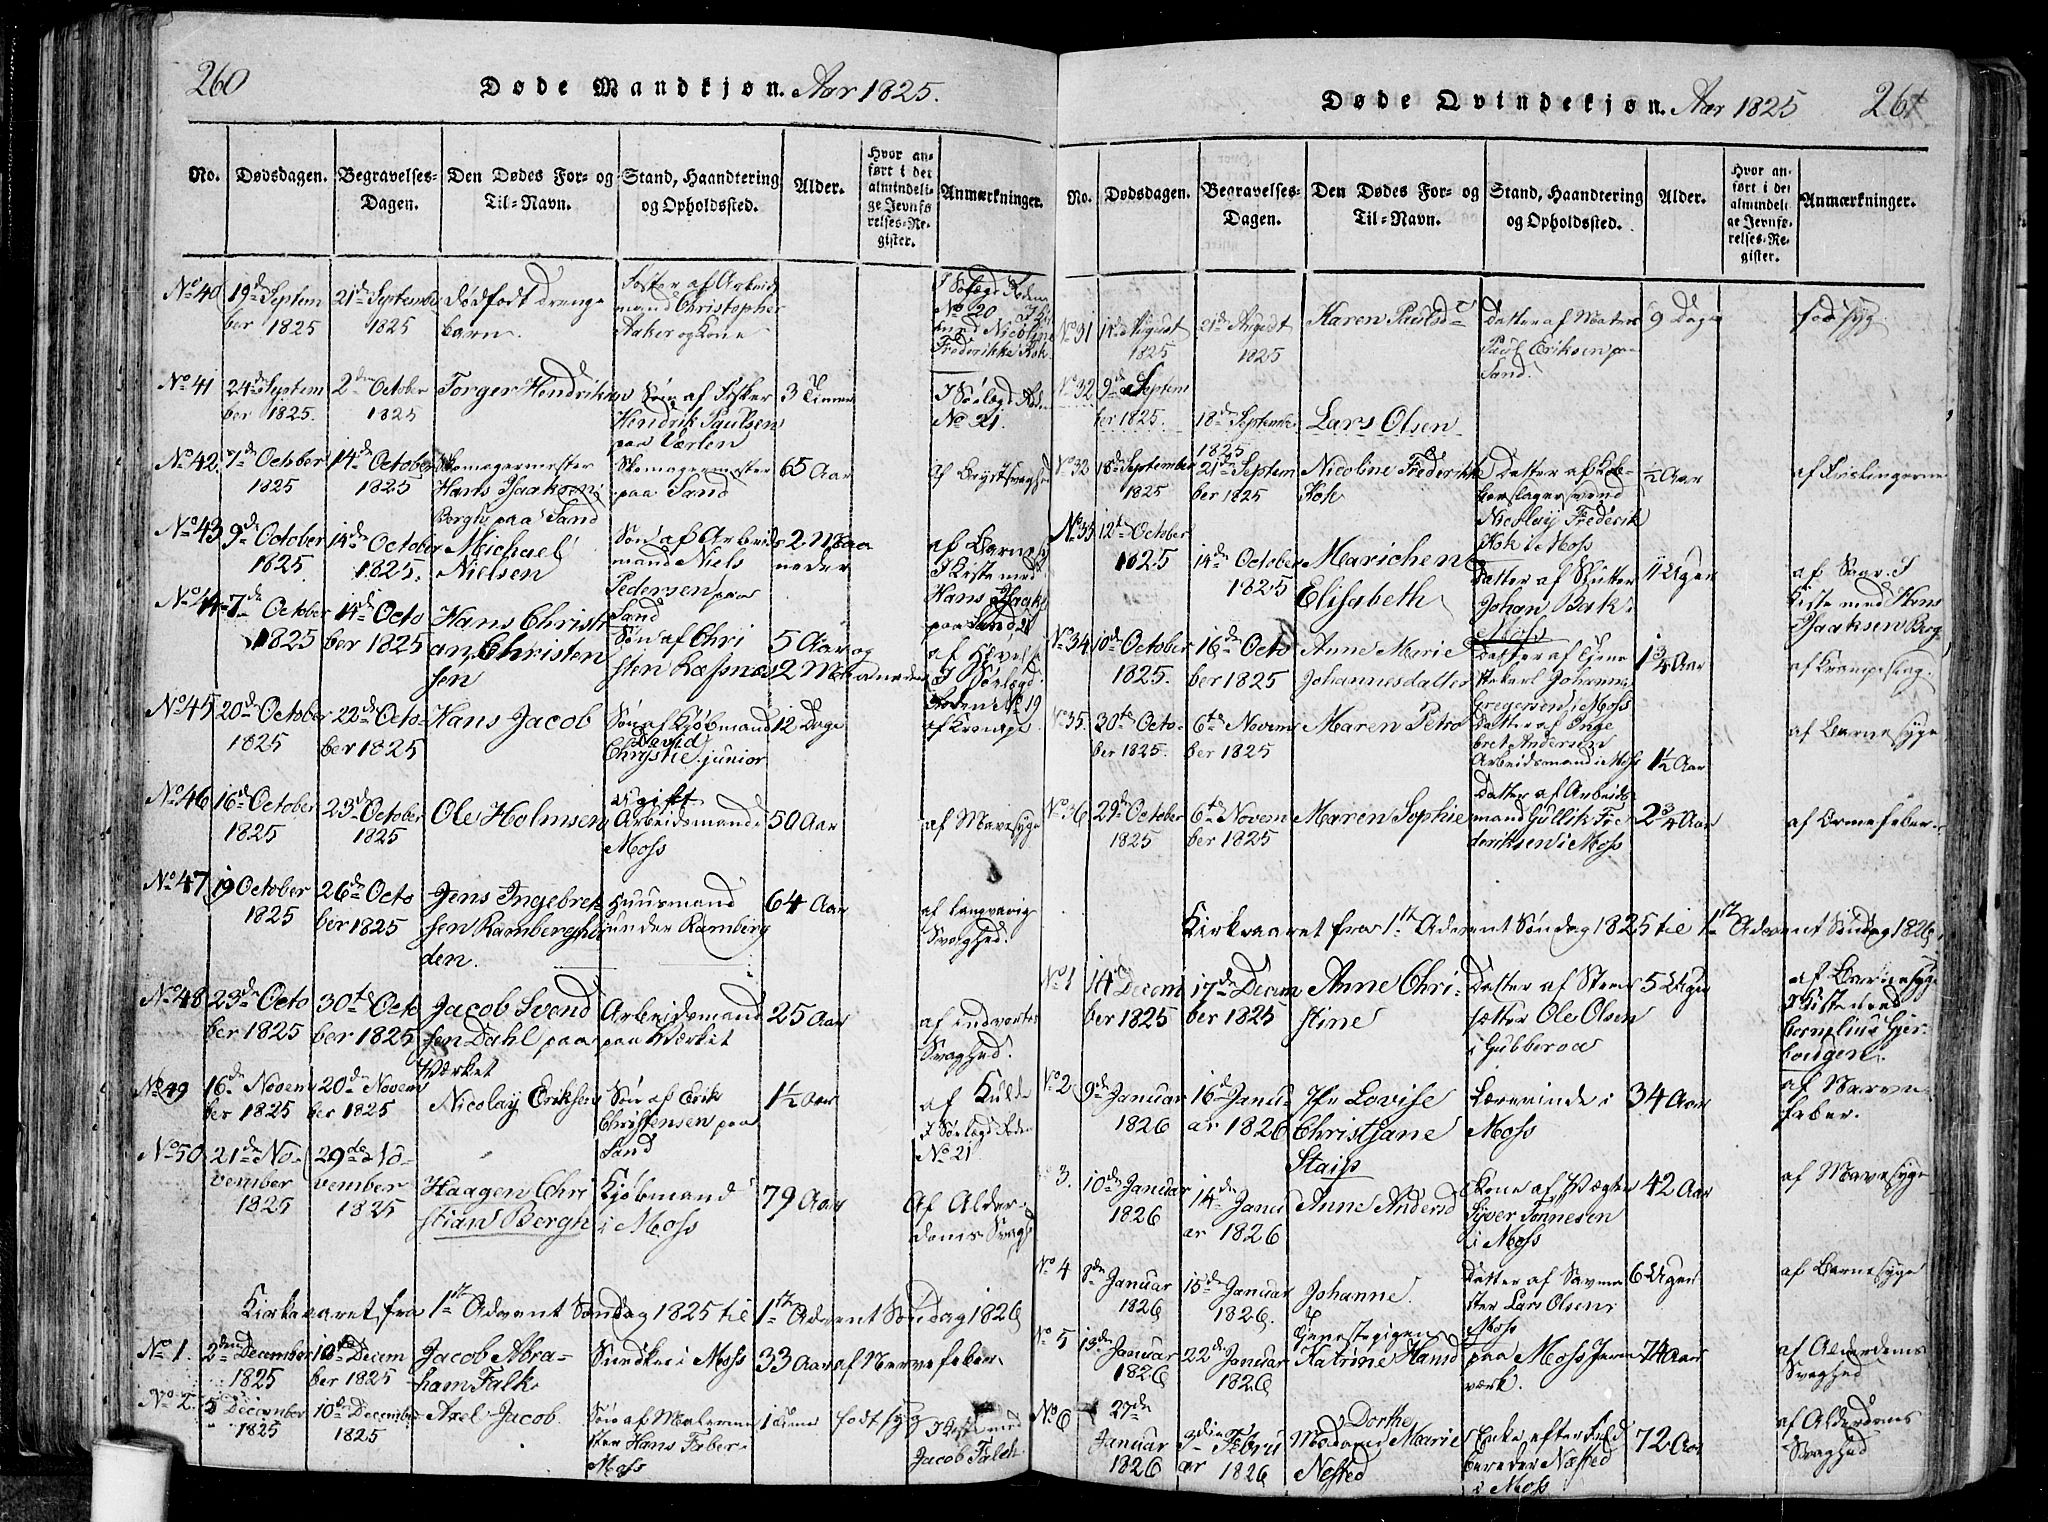 260
Døde Mandkjøn. Aar 1825.
No.
Dødsdagen.
Begravelses-
Dagen.
Den Dødes For- og
Til-Navn.
Stand, Haandtering
og Opholdssted.
Alder.
Hvor an-
ført i det
almindeli-
ge Jevnfø-
relses-Re-
gister.
Anmærkninger.
No 40
19de Septem
ber 1825
21de Septembr
1825
dødfødt drenge
barn.
af Arbeids
mand Christopher
Aaker og Kone
No 20
Frederikke Kok
No 41
24de Septem
ber 1825.
2den October
1825
Torger Hendriks
Søn af Fisker
Hendrik Paulsen
paa Værlen
3 Timer
No 21.
No 42
7de October
1825
14de October
1825
Skomagermester
Hans Isaksen
Bergh paa Sand
Skomagermester
paa Sand
65 Aar
af Brystsvaghed
No 43
9de October
1825.
14de October
1825.
Michael
Nielsen
Søn af Arbeids
mand Niels
Pedersen paa
Sand
2 Maa
neder
af Barnes.
I Kiste med
Hans Isaks.
paa Sand
No 44
7de October
1825
14de Octo
ber 1825
Hans Christi
an Christen
sen
Søn af Chri
sten Ræsnæs
5 Aar og
2 Maaneder
No 19
No 45
20de October
1825
22de Octo-
ber 1825
Hans Jacob
Søn af Kjøbmand
David
Chrystie junior
12 Dage
af Krampe.
No 46
16de October
1825
23de October
1825
Ole Holmsen
ugift
Arbeidsmand i
Moss
50 Aar
af Mavesyge
No 47
19 October
1825
26de Octo
ber 1825
Jens Ingebret
sen Ramberghei
den.
Huusmand
under Ramberg
64 Aar
af langvarig
Svaghed.
No 48
23de Octo
ber 1825
30te Octo
ber 1825
Jacob Svend
sen Dahl paa
Værket
Arbeidsmand
paa Værket
25 Aar
af indvortes
Svaghed.
No 49
16de Novem
ber 1825
20de Novem
ber 1825
Nicolay Eriksen
Søn af Erik
Christensen paa
Sand
1½ Aar
af Kulde
No 21
No 50
21de No-
vember
1825
29de No-
vember
1825
Haagen Chri
stian Bergh
Kjøbmand
i Moss
79 Aar
Af Alder-
doms Svagh
Kirkeaaret fra 1ste Advent Søndag 1825 til 1ste Advent Søndag 1826
No 1.
2den December
1825
10de Decem
ber 1825
Jacob Abra-
ham Falk
i Moss
33 Aar
af Nervefeber.
No 2.
5 December
1825
10de December
1825
Axel Jacob.
Søn af Malerme
ster Hans Faber
Moss
1 Time
født syg
I Kiste med
Jacob Falck
Døde Qvindekjøn. Aar 1825
261
No.
Dødsdagen.
Begravelses-
Dagen.
Den Dødes For- og
Til-Navn.
Stand, Haandtering
og Opholdssted.
Alder.
Hvor an-
ført i det
almindeli-
ge Jevnfø-
relses-Re-
gister.
Anmærkninger.
No 31
August
1825
21de August
1825
Karen Paulsd
Datter af Matros
Paul Eriksen paa
Sand.
9 Dage
fød syg.
No 32
9de Septem
ber 1825.
18de Septembr
1825
Lars Olsen
No 32
18de September
1825
21de Septem
ber 1825
Nicoline Frederikke
Kok
Datter af Kob-
berslagersvend
Nicolay Frederik
Kok i Moss
½ Aar
No 33
12te October
1825
14de October
1825
Marichen
Elisabeth
Datter af
Johan Bak i
Moss
11 Uger
Kiste med Hans
Isaksen Berg
No 34
10de October
1825.
16de Octo
ber 1825
Anne Marie
Johannesdatter
Datter af Tjene
stekarl Johannes
Gregersen i Moss
1¾ Aar
af Krampeslag.
No 35.
30te Octo-
ber 1825.
6te Novem
ber 1825
Maren Petro
Datter af Inge
bret Andersen
Arbeidsmand i Moss
1½ Aar
af Barnesyge
No 36
29de October
1825
6te Novem
ber 1825
Maren Sophie
Datter af Arbeids
mand Gullik Fre
deriksen i Moss
2¾ Aar
af Ormefeber.
Kirkeaaret fra 1ste Advent Søndag 1825 til 1ste Advent Søndag 1826
No 1
14 Decem
ber 1825
17de Decem
ber 1825
Anne Chri-
stine
Datter af Steen
sætter Ole Olsen
i Gubberoe
5 Uger
af Barnesyge
I Kiste med
Cornelius
No 2
9de Januar
1826
16de Janu
ar 1826
Jfr Lovise
Christiane
Staip
Lærerinde i
Moss
34 Aar
af Nerve
feber.
No 3.
10de Januar
1826
14de Janu
ar 1826
Anne Andersd
Kone af Vægter
Syver Tønnesen
i Moss
42 Aar
af Mavesyge
No 4
8de Januar
1826
15de Januar
1826.
Johanne
Datter af Savme
ster Lars Olsen i
Moss
6 Uger
af Barnesyge
No 5
13de Januar
1826
22de Januar
1826
Tjenestepigen
Katrine Hansd
paa Moss Jern
værk.
74 Aar
af Alderdoms
Svaghed
No 6
27de
Januar
1826
3die Febru
ar 1826
Dorthe
Madame Marie
Nested
Enke efter Feld
bereder Næsted
i Moss
72 Aar
af Alderdoms
Svaghed